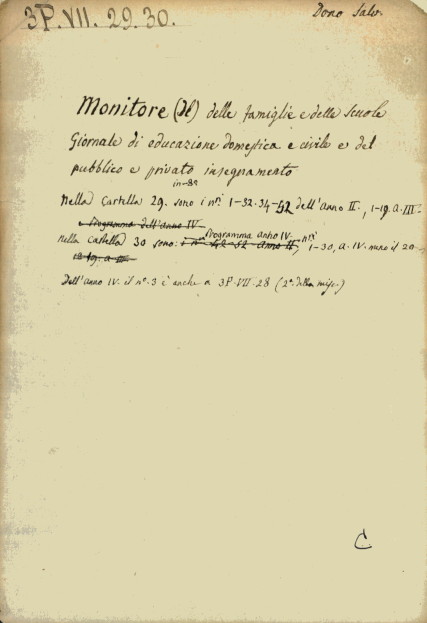 3P.VII.29.30.
Dono Salv.
Monitore (Il) delle famiglie e delle scuole
Giornale di educazione domestica e civile e del
pubblico e privato insegnamento
in-8º
Nella Cartella 29. sono i nri 1-32-34-42 dell'anno II., 1-19. a. III-
e Programma dell'anno IV
Programma anno IV. nri
Nella cartella 30 sono: i nri 42-52 anno II, 1-30, a. IV. meno il 20-
a. III
Dell'anno IV. il nº. 3 è anche a 3P.VII.28 (2ª. della misc.)
C